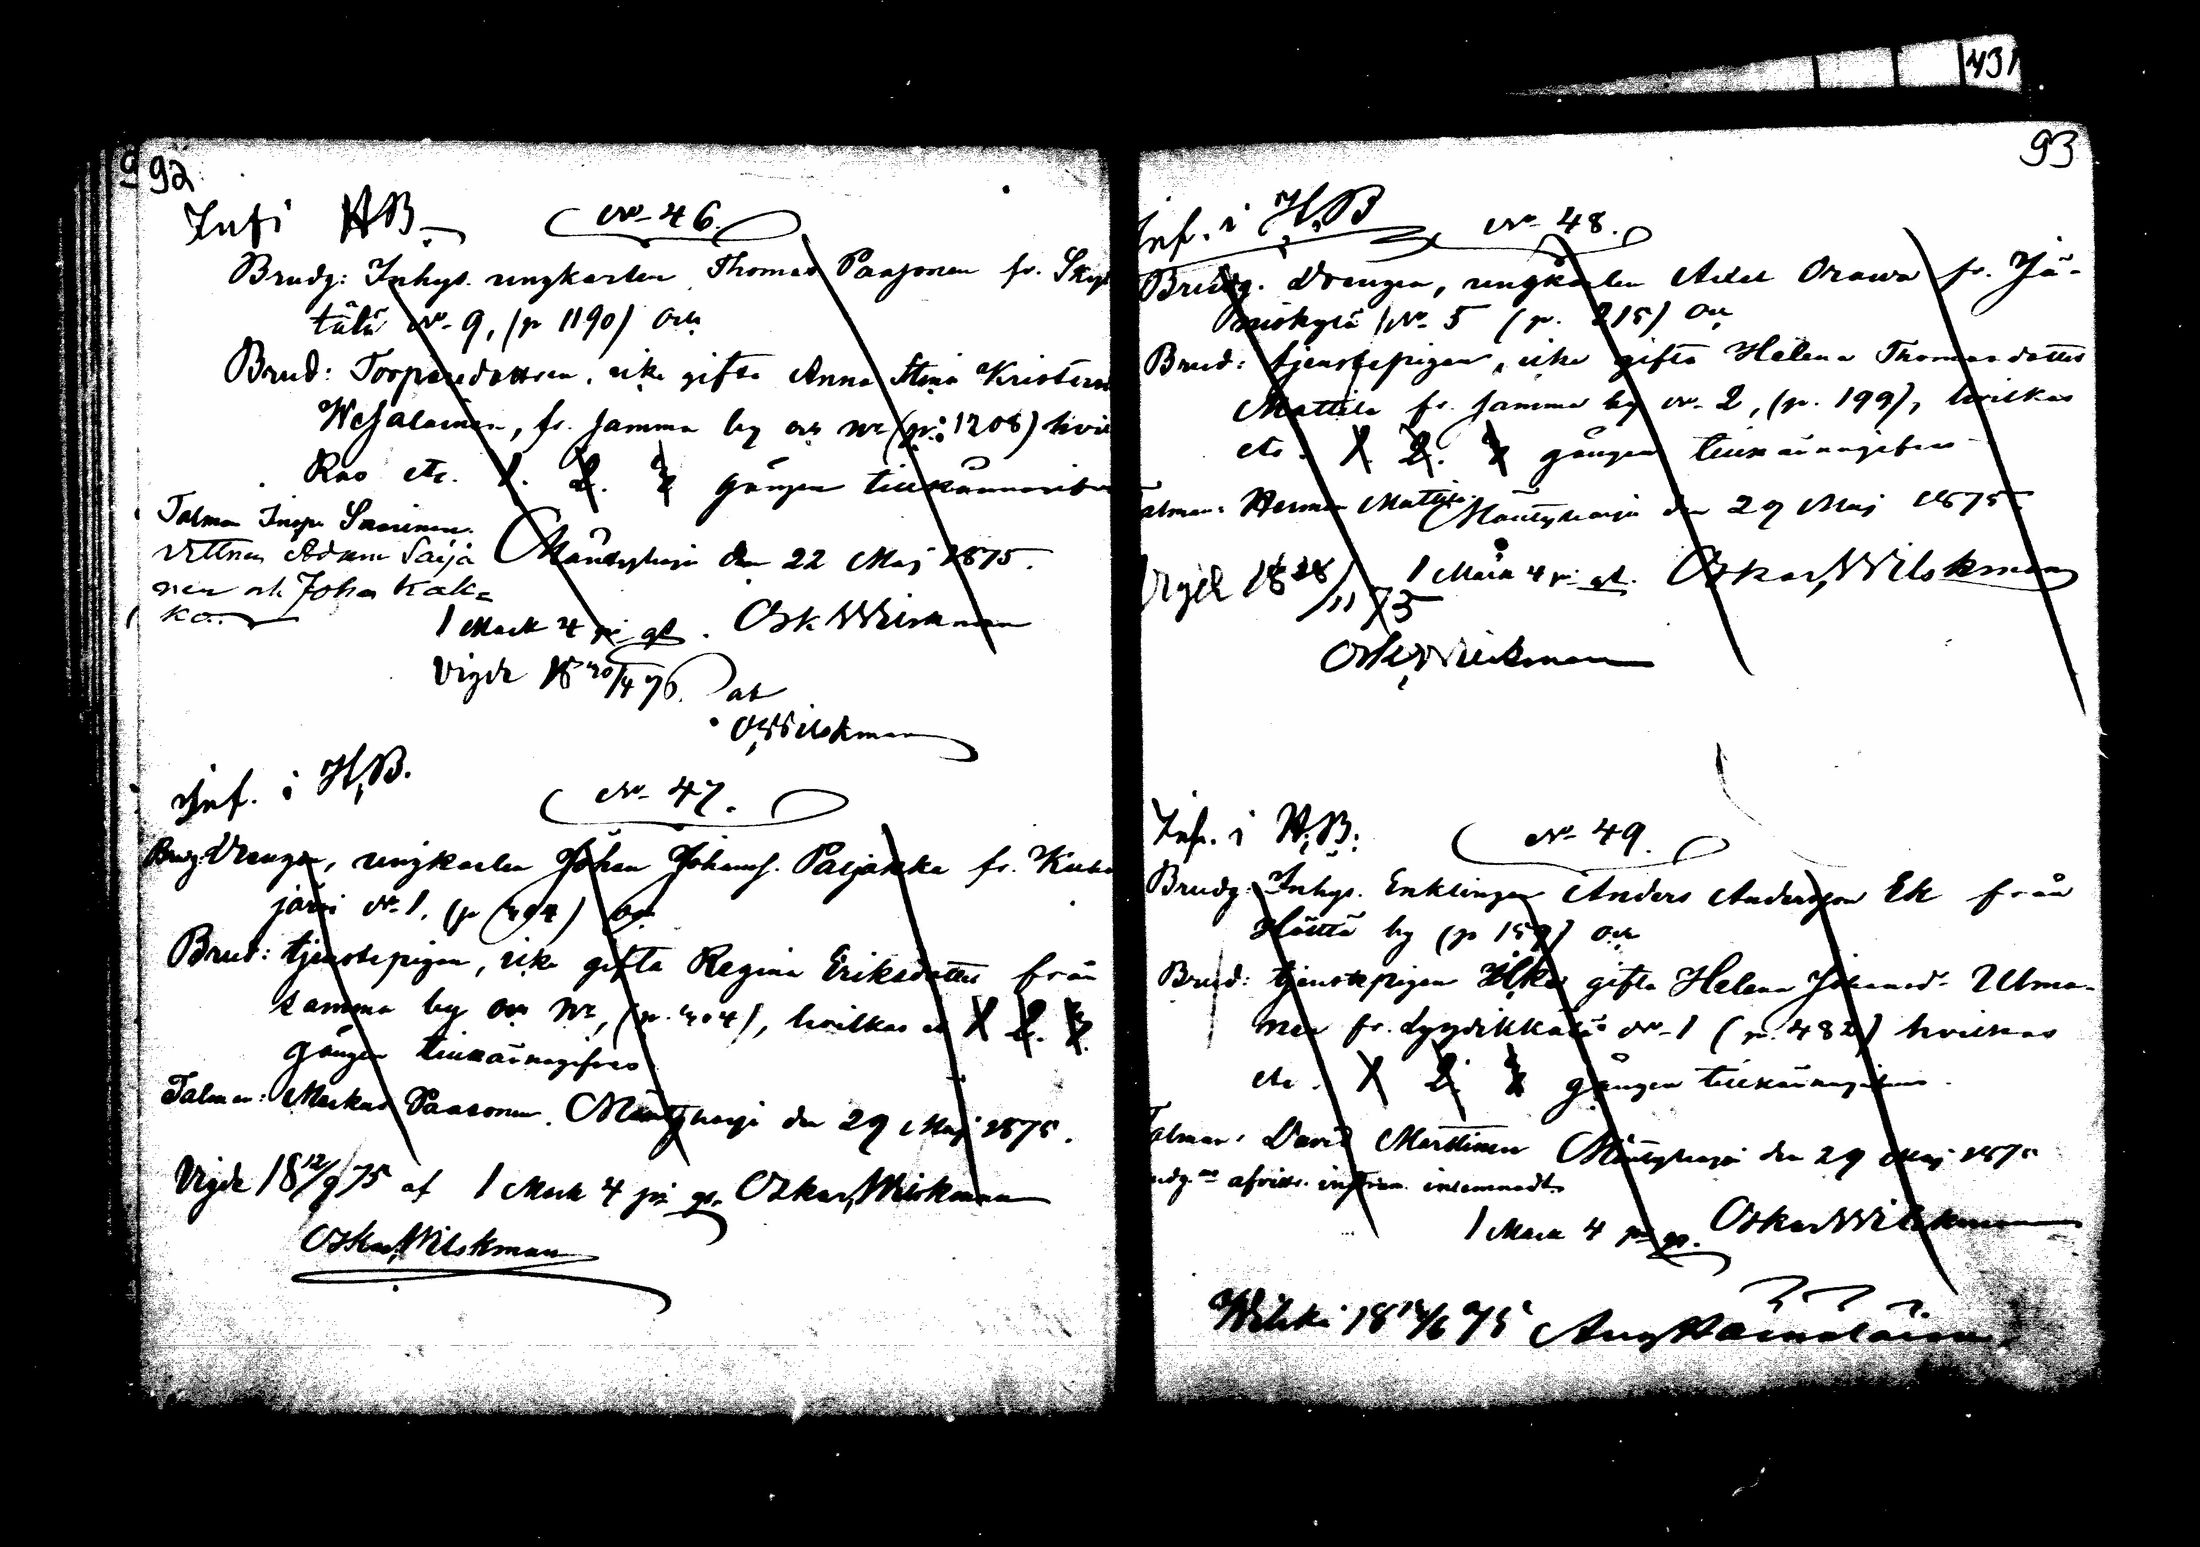 431
92
Inf i HB
No 46.
Brudg: Inhys. ungkarlen Thomas Paajonen fr.
No 9, (p 1190) och
Brud: Torparedottren, icke gifta Anna Stina
fr. samma by och Nr (p: 1208)
kas etc. 1. 2. 3 gången
Talman Inspr Saarinen.
vittnen Adam Saija
nen och Johan Kak=
ko.
Mäntyharju den 22 Maj 1875.
1 Mark 4 pi gt. Osk Wilskman
Vigde 18 20/4 76. af
O Wilskman
Inf. i H,B.
No 47.
Brudg: Drengen, ungkarlen Johan Johanss. Paijakka fr.
järvi No 1. (p 494) och
Brud: tjenstepigan, icke gifta Regina Eriksdotter från
samma by och Nr, hvilkas etc 1 2. 3.
gången tillkännagifves
Talman: Markus Paasonen. Mäntyharju den 29 Maj 1875.
Vigde 18 12/9 75 af 1 Mark 4 pi gt. Oskar Wilskman
Oskar Wilskman
93
Inf. i H,B
No 48.
Brudg. Drengen, ungkarlen Adel Orawa fr. Jä-
niskylä No 5 (p. 215) och
Brud: tjenstepigan, icke gifta Helena Thomasdotter
Mattila fr. samma by No 2, (p. 199), hvilkas
etc. 1. 2. 3 gången tillkännagifves
Talman: Herman Mattila Mäntyharju den 29 Maj 1875.
Vigde 18 28/11 75 1 Mark 4 pi gt. Oskar Wilskman
Osk Wilskman
Inf. i H,B:
No 49.
Brudg: Inhys. Enklingen Anders Andersson Ek från
by (p 159) och
Brud: tjenstepigan icke gifta Helena Johansd. Ulma-
nen fr. Lyydikkälä No 1 (p. 482) hvilkas
etc. 1 2. 3 gången tillkännagifves.
Talman: David Marttinen Mäntyharju den 29 Maj 1875
1 Mark 4 pi gt. Oskar Wilskman
18 75 Aug Hämäläinen